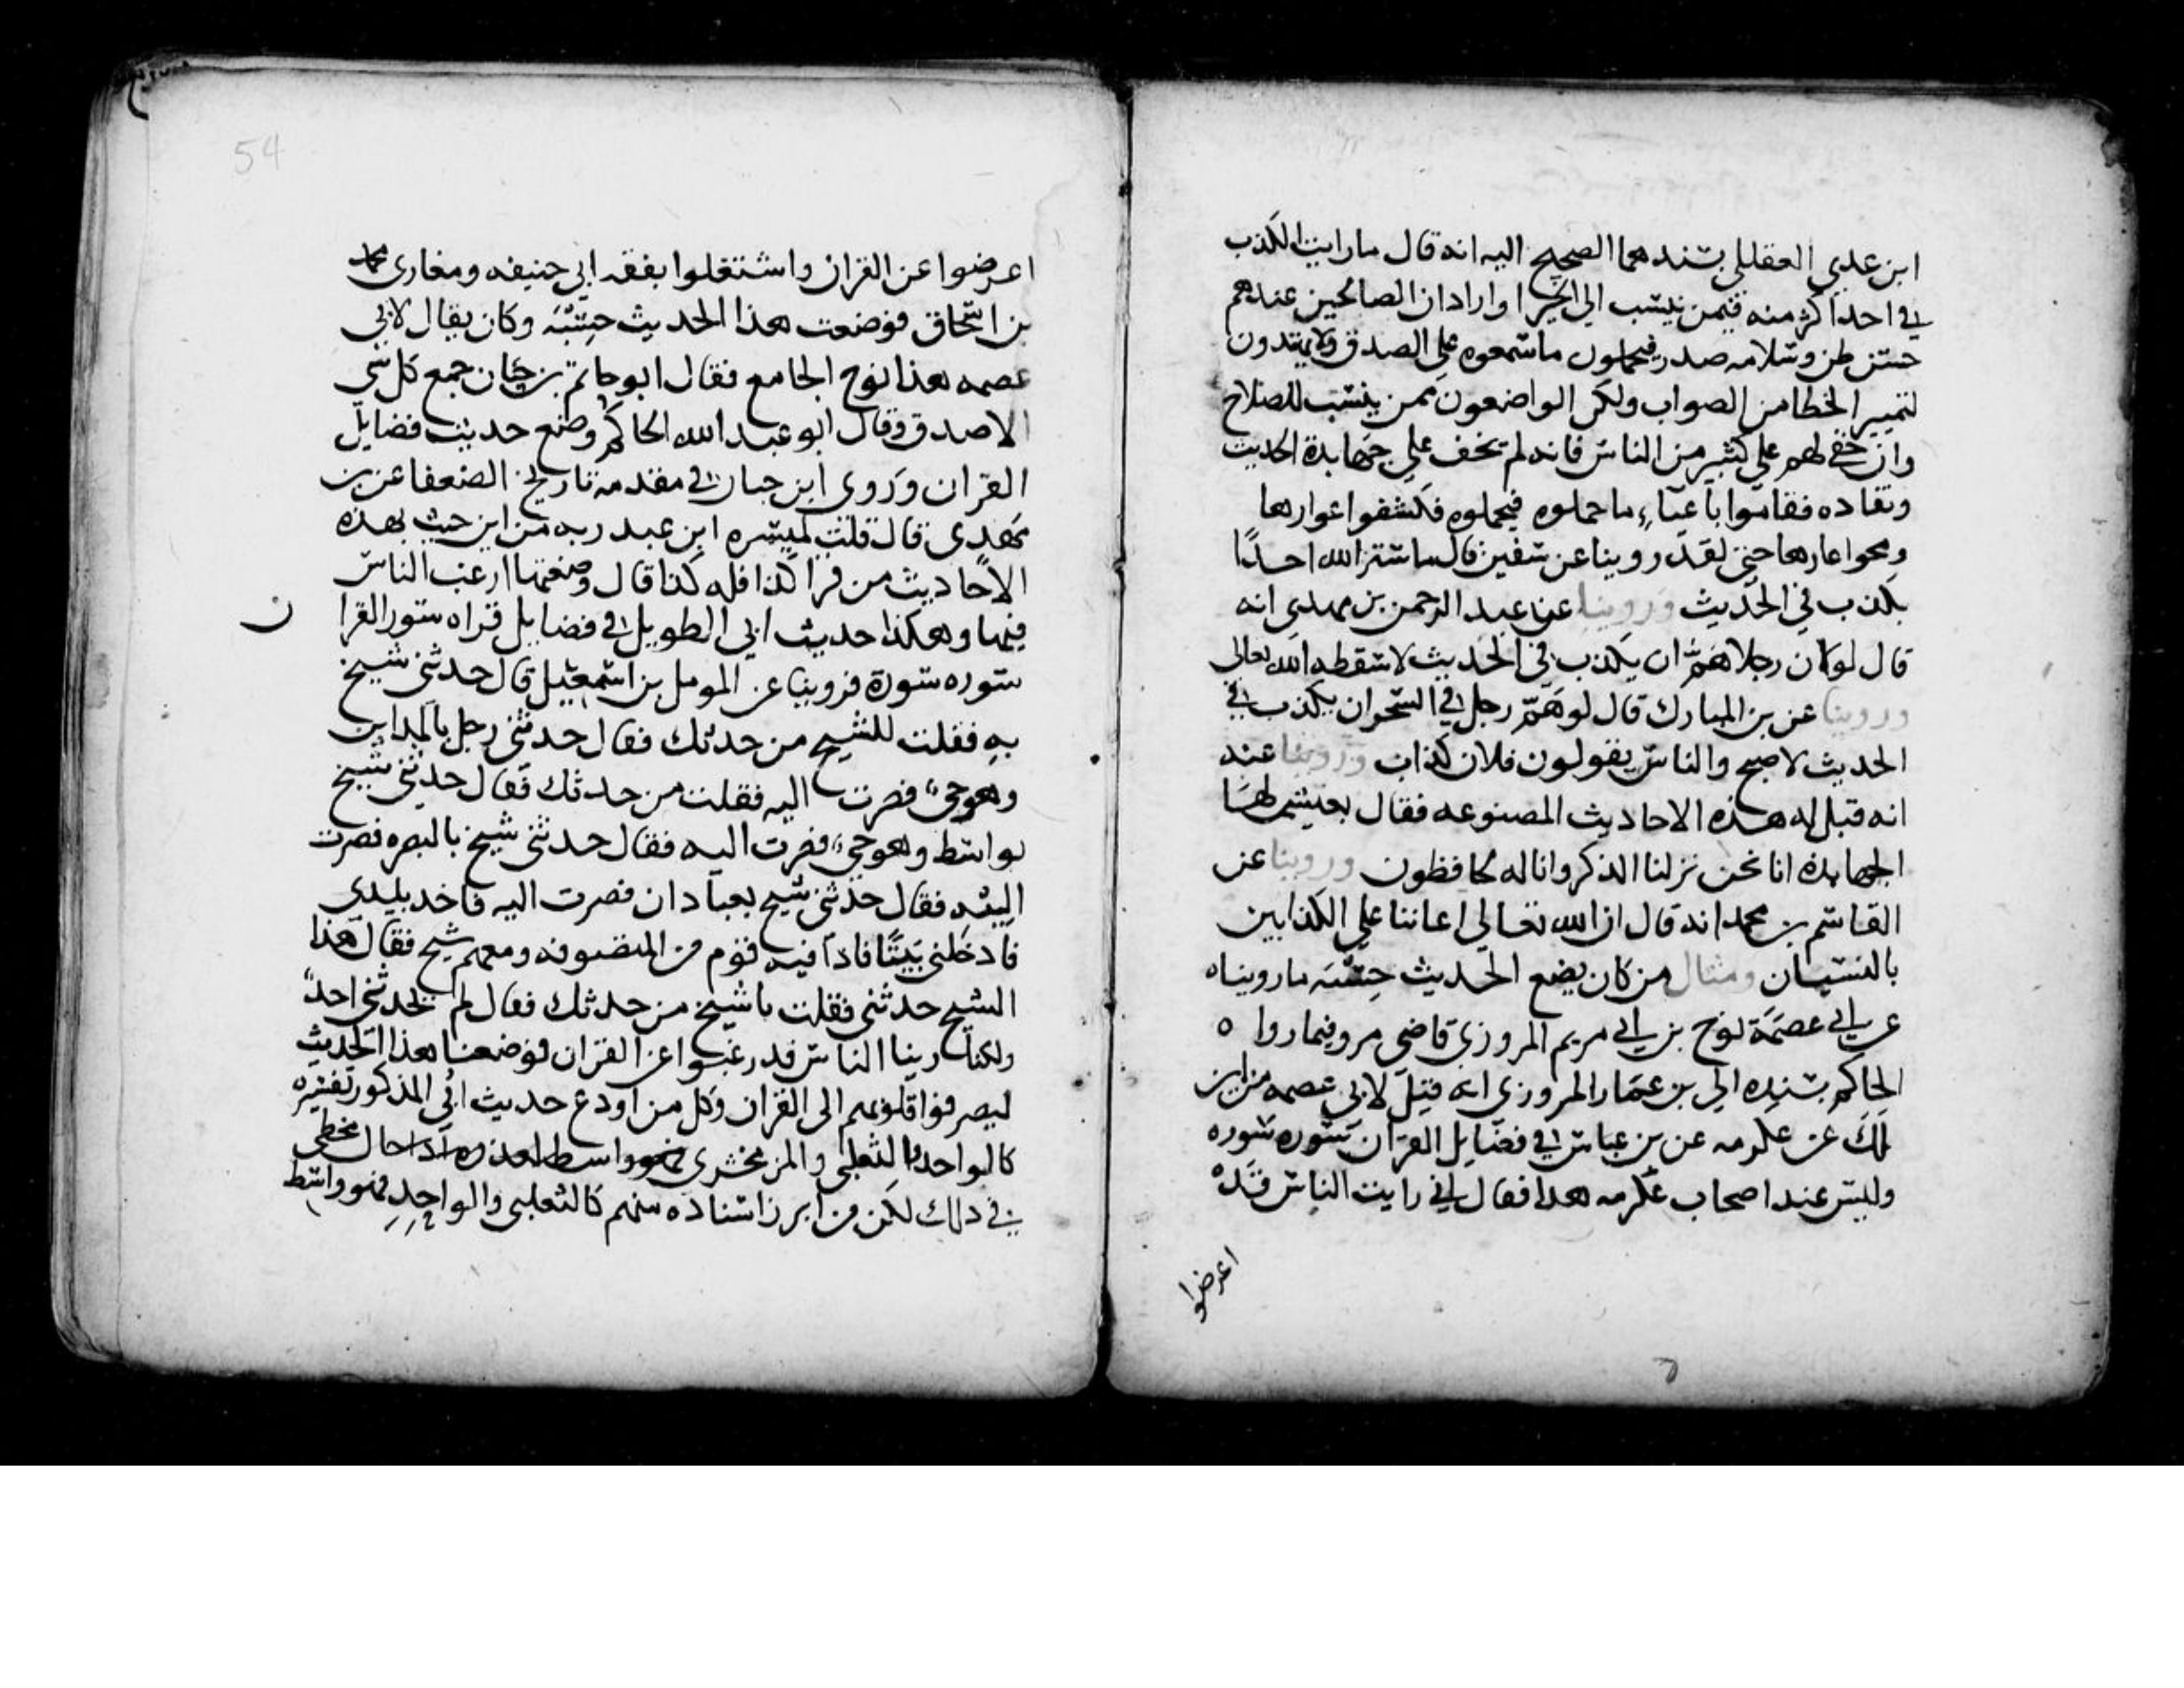 ابن عدي العقيلي بسندهما الصحيح اليه انه قال ما رايت الكذب
في احد اكثر منه فيمن ينسب الي الخير اوارادان الصالحين عندهم
حسن ظن وسلامه صدر فيحملون ماسمعوه علي الصدق ولا يهتدون
لتمييز الخطا من الصواب ولكن الواضعون ممن ينسب للصلاح
وان خفي لهم علي كثير من الناس فانه لم يخف علي جهابدة الحديث
ونقاده فقاموا باعباء ما حملوه فيحملوه فكشفوا عوارها
ومحوا عارها حتي لقد روينا عن سفين قال ماستر الله احدًا
بكذب في الحديث وروينا عن عبد الرحمن بن مهدي انه
قال لو كان رجلا همّ ان يكذب في الحديث لاسقطه الله تعالي
وروينا عن بن المبارك قال لو همّ رجل في السحر ان يكذب في
الحديث لاصبح والناس يقولون فلان كذاب وروينا عنه
انه قيل له هذه الاحاديث المصنوعه فقال يعيش لها
الجهابدة انا نحن نزلنا الذكر وانا له لحافظون وروينا عن
القاسم بن محمد انه قال ان الله تعالي اعاننا علي الكذابين
بالنسيان ومثال من كان يضع الحديث حِسْبَة ما رويناه
عن ابي عصمَة نوح بن ابي مريم المروزي قاضي مرو فيما روا ه
الحاكم بسنده الي بن عمار المروزي انه قيل لابي عصمه من اين
لك عن عكرمه عن بن عباس في فضايل القران سوره سوره
وليس عند اصحاب عكرمه هدا فقال اني رايت الناس قد
اعرضوا
54
اعرضوا عن القران واشتغلوا بفقه ابي حنيفه ومغازي محمد
بن اسحاق فوضعت هذا الحديث حِسْبَة وكان يقال لابي
عصمه هذا نوح الجامع فقال ابو حاتم بن حبان جمع كل شي
الا صدق وقال ابو عبد الله الحاكم وضع حديث فضايل
القران وروي ابن حبان في مقدمة تاريخ الضعفا عن بن
مهدي قال قلت لميسره ابن عبد ربه من اين جيت بهذه
الاحاديث من قرا كذا فله كذا قال وضعتها ارغب الناس
فيها وهكذا حديث ابي الطويل في فضايل قراه سور القرا ن
سوره سورة فروينا عن المومل بن اسمعيل قال حدثني شيخ
به فقلت للشيح من حدثك فقال حدثني رجل بالمداين
وهو حيّ فصرت اليه فقلت من حدثك فقال حدثني شيخ
بواسط وهو حيّ فصرت اليه فقال حدثني شيخ بالبصره فصرت
اليه فقال حدثني شيخ بعبادان فصرت اليه فاخد بيدي
فادخلني بيتًا فادا فيه قوم من المتصوفه ومعهم شيح فقال هذا
الشيح حدثني فقلت يا شيخ من حدثك فقال لم يحدثني احد
ولكنا راينا الناس قد رغبوا عن القران فوضعنا هذا الحديث
ليصرفوا قلوبهم الى القران وكل من اودع حديث ابي المذكور تفسيره
كالواحد والثعلبي والزمخشري مخطي
في دلك لكن من ابرز اسناده منهم كالثعلبي والواحدي فهو واسط